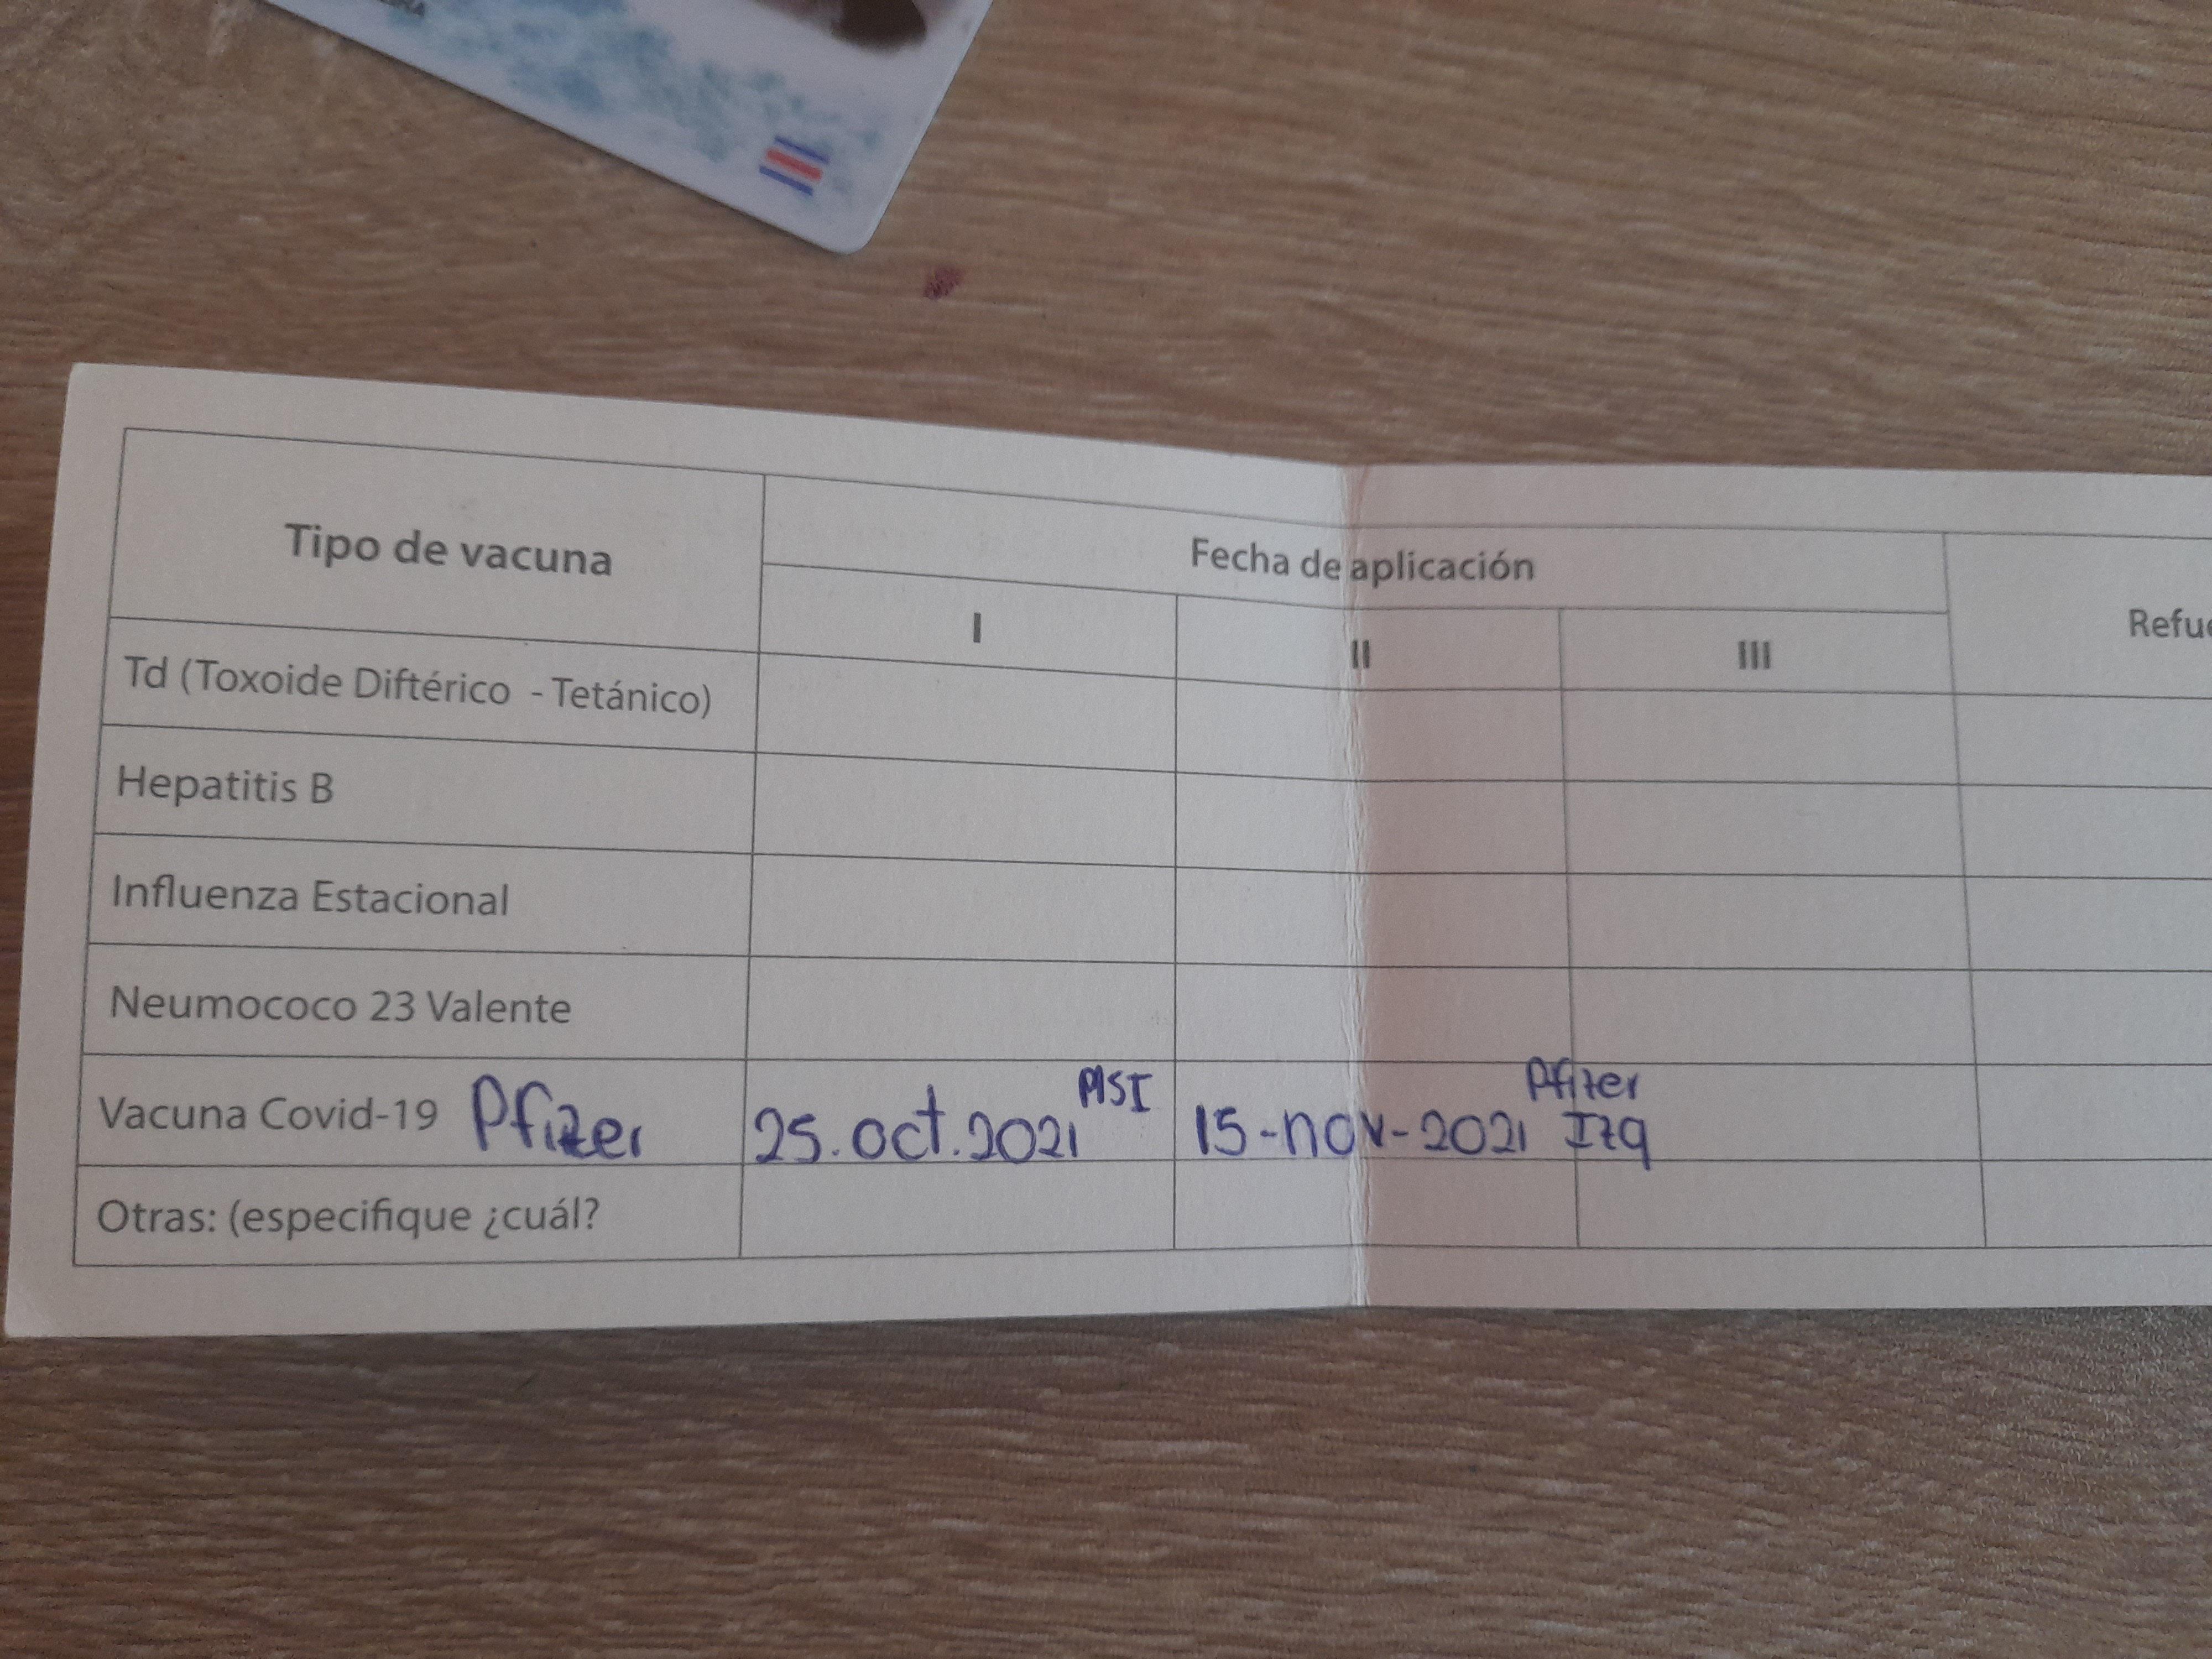 Tipo de vacuna
Fecha de aplicación
I II III
Td (Toxoide Diftérico - Tetánico)
Hepatitis B
Influenza Estacional
Neumococo 23 Valente
Vacuna Covid-19 Pfizer 25.oct.2021 MSI 15-nov-2021 Pfizer Izq
Otras: (especifique ¿cuál?